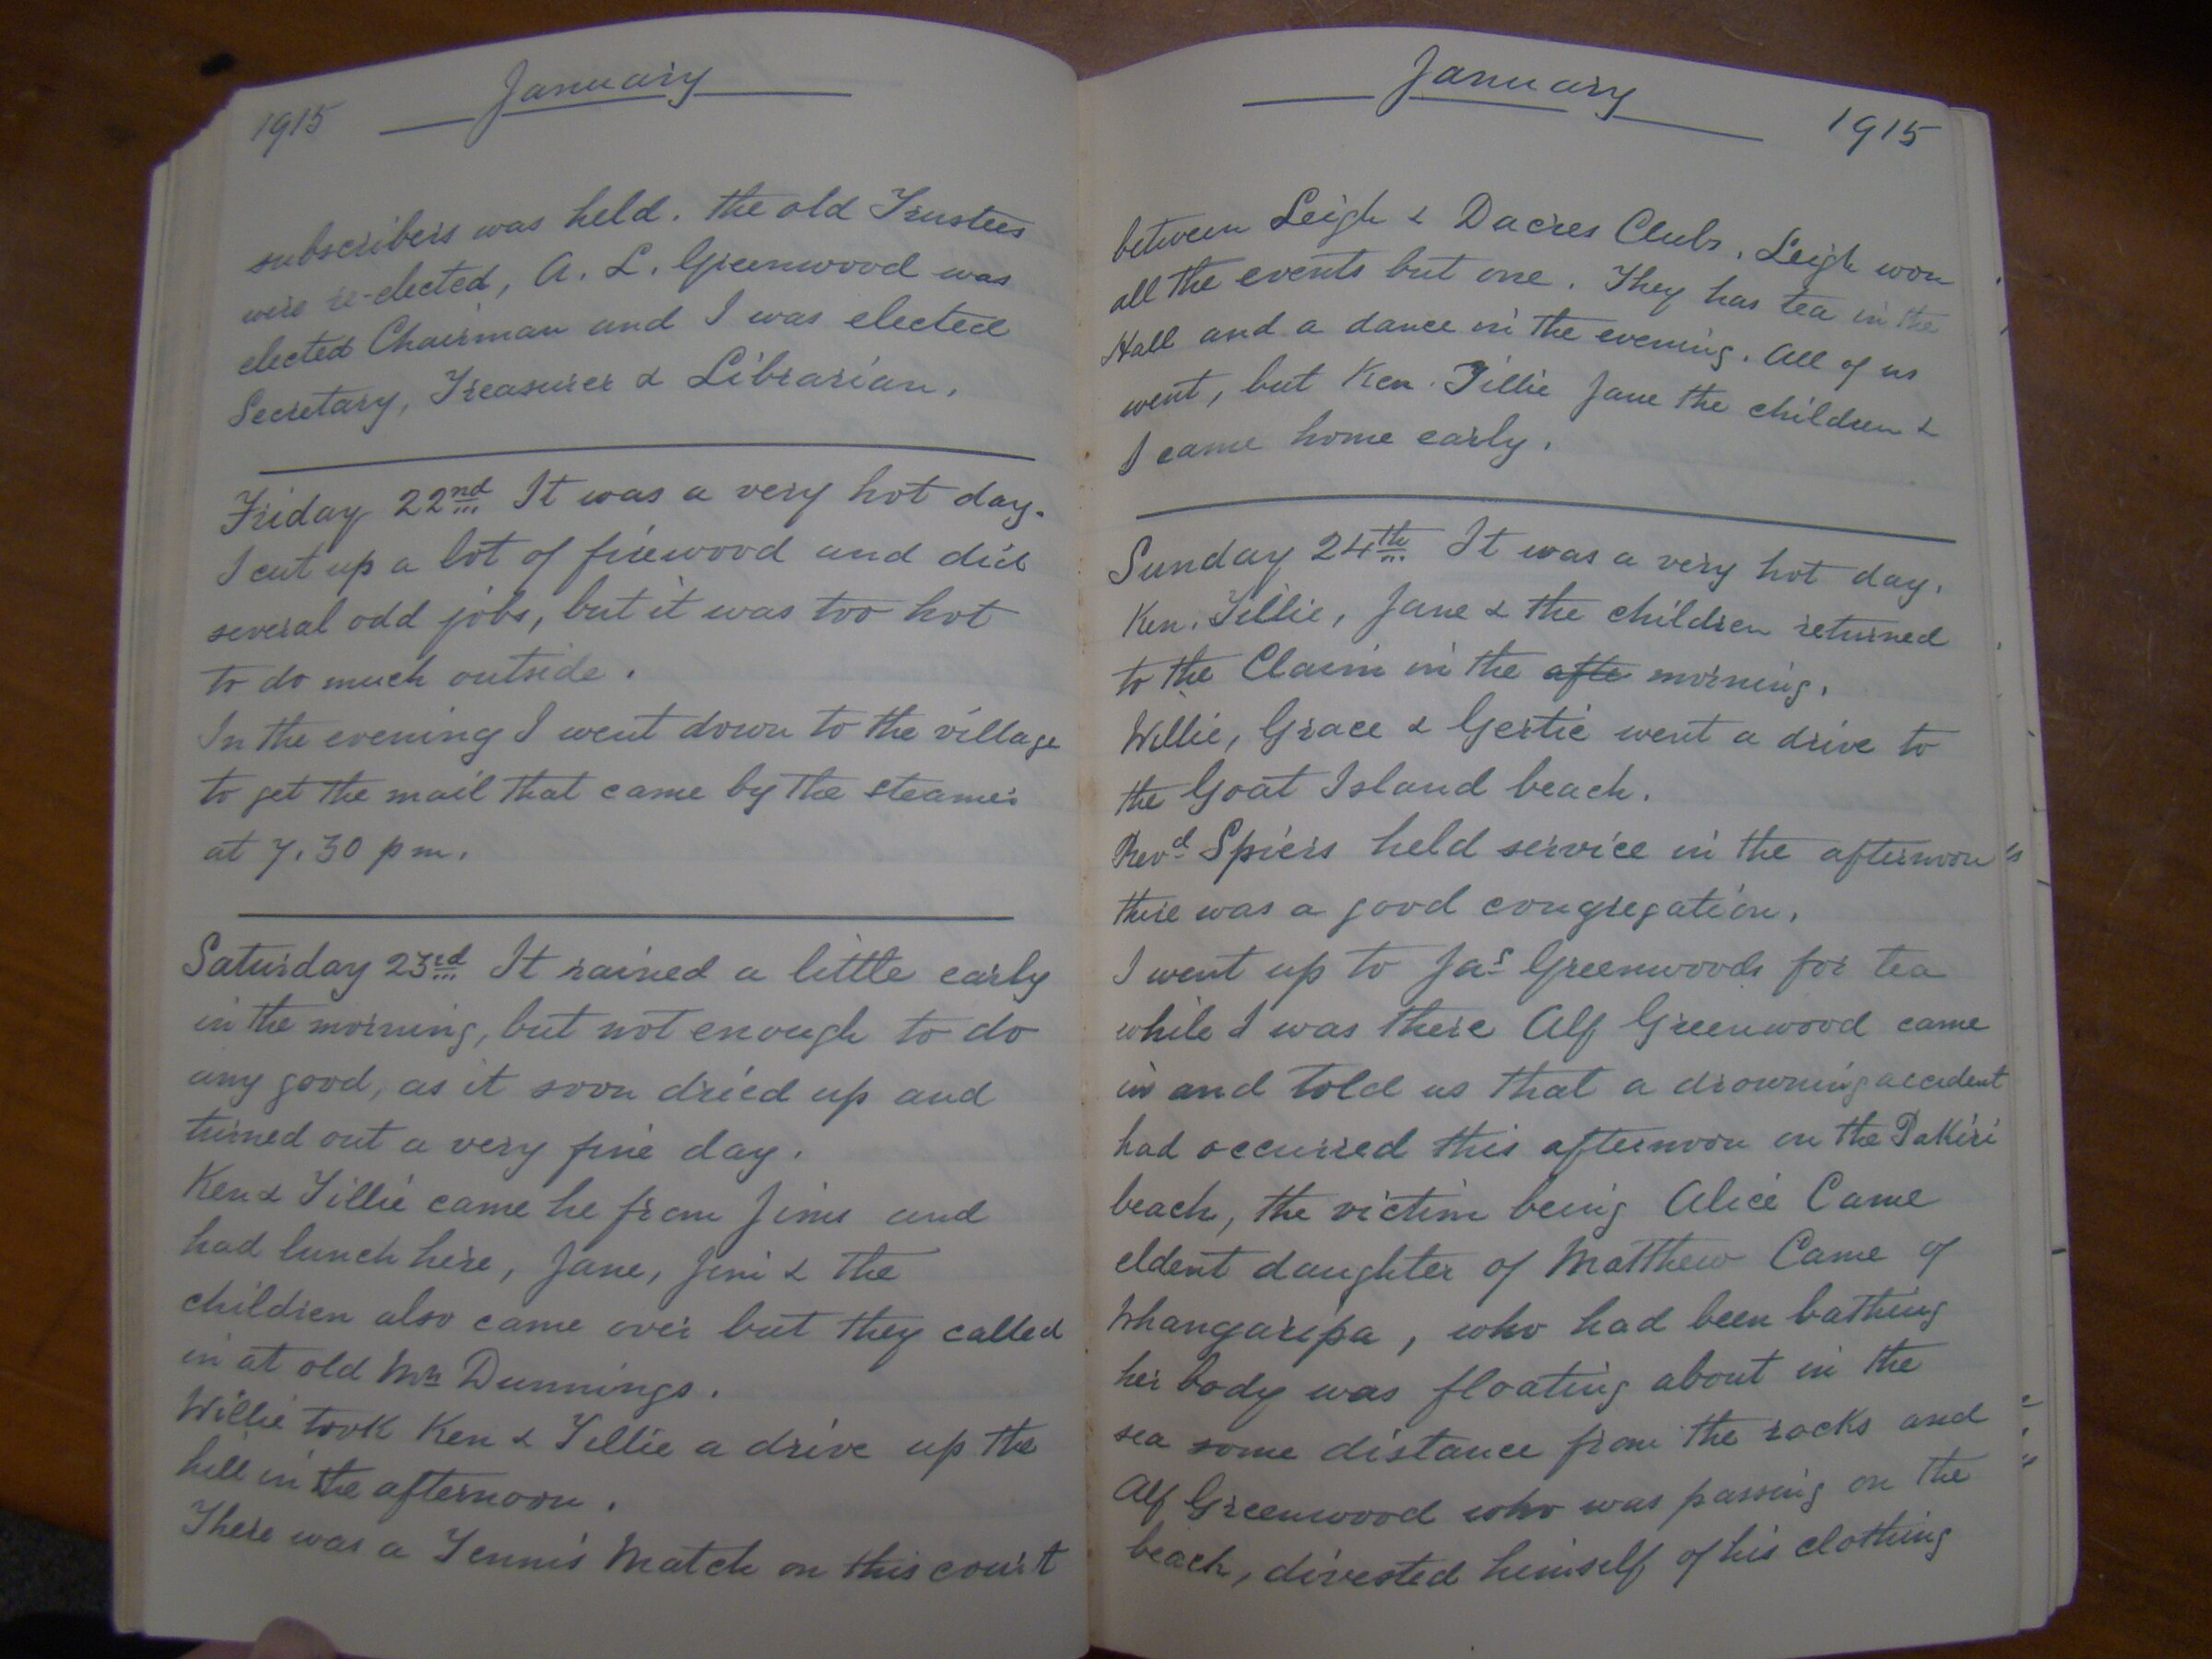 1915
January
subscribers was held. the old Trustees
were re-elected, A. L. Greenwood was
elected Chairman and I was elected
Secretary, Treasurer & Librarian.
Friday 22nd It was a very hot day.
I cut up a lot of firewood and did
several odd jobs, but it was too hot
to do much outside.
In the evening I went down to the village
to get the mail that came by the steamer
at 7.30 pm.
Saturday 23rd It rained a little early
in the morning, but not enough to do
any good, as it soon dried up and
turned out a very fine day.
Ken & Tillie came he from Jims and
had lunch here, Jane, Jim & the
children also came over but they called
in at old Mrs Dunnings.
Willie took Ken & Tillie a drive up the
hill in the afternoon.
There was a Tennis Match on this court
January
1915
between Leigh & Dacres Clubs. Leigh won
all the events but one. They has tea in the
Hall and a dance in the evening. All of us
went, but Ken. Tillie Jane the children &
I came home early.
Sunday 24th It was a very hot day.
Ken. Tillie, Jane & the children returned
to the Claim in the afte morning.
Willie, Grace & Gertie went a drive to
the Goat Island beach.
Revd Spiers held service in the afternoon
there was a good congregation.
I went up to Jas Greenwoods for tea
while I was there Alf Greenwood came
in and told us that a drowning accident
had occurred this afternoon on the Pakiri
beach, the victim being Alice Came
eldent daughter of Matthew Came of
Whangaripa, who had been bathing
her body was floating about in the
sea some distance from the rocks and
Alf Greenwood who was passing on the
beach, divested himself of his clothing